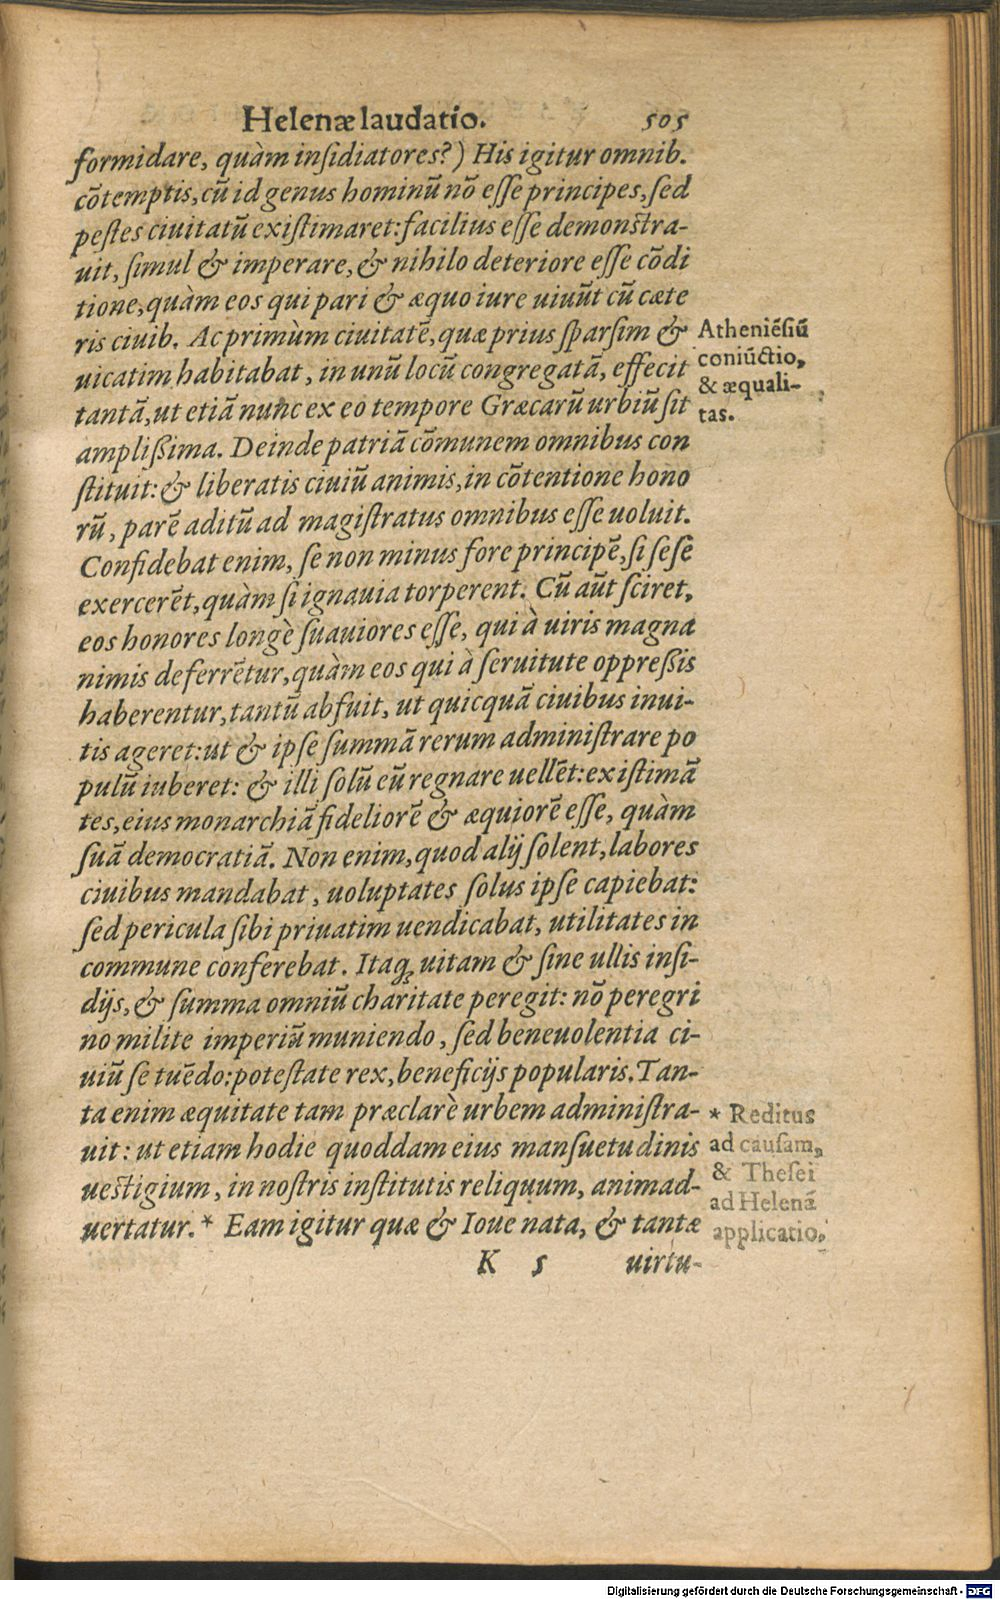 Helenæ laudatio. 505
formidare, quàm inſidiatores?) His igitur omnib.
cõtemptis, cũ id genus hominũ nõ eſſe principes, ſed
peſtes ciuitatũ exiſtimaret: facilius eſſe demonſtra-
uit, ſimul & imperare, & nihilo deteriore eſſe cõdi
tione, quàm eos qui pari & æquo iure uiuũt cũ cæte
ris ciuib. Ac primùm ciuitatẽ, quæ prius ſparſim &
uicatim habitabat, in unũ locũ congregatã, effecit
tantã, ut etiã nunc ex eo tempore Græcarũ urbiũ ſit
ampliſſima. Deinde patriã cõmunem omnibus con
ſtituit: & liberatis ciuiũ animis, in cõtentione hono
rũ, parẽ aditũ ad magiſtratus omnibus eſſe uoluit.
Confidebat enim, ſe non minus fore principẽ, ſi ſeſe
exercerẽt, quàm ſi ignauia torperent. Cũ aũt ſciret,
eos honores longè ſuauiores eſſe, qui à uiris magna
nimis deferrẽtur, quàm eos qui à ſeruitute oppreſſis
haberentur, tantũ abfuit, ut quicquã ciuibus inui-
tis ageret: ut & ipſe ſummã rerum adminiſtrare po
pulũ iuberet: & illi ſolũ eũ regnare uellẽt: exiſtimã
tes, eius monarchiã fideliorẽ & æquiorẽ eſſe, quàm
ſuã democratiã. Non enim, quod alij ſolent, labores
ciuibus mandabat, uoluptates ſolus ipſe capiebat:
ſed pericula ſibi priuatim uendicabat, utilitates in
commune conferebat. Itaq; uitam & ſine ullis inſi-
dijs, & ſumma omniũ charitate peregit: nõ peregri
no milite imperiũ muniendo, ſed beneuolentia ci-
uiũ ſe tuẽdo: poteſtate rex, beneficijs popularis. Tan-
ta enim æquitate tam præclarè urbem adminiſtra-
uit: ut etiam hodie quoddam eius manſuetudinis
ueſtigium, in noſtris inſtitutis reliquum, animad-
uertatur. * Eam igitur quæ & Ioue nata, & tantæ
K 5 uirtu-
Atheniẽſiũ
coniũctio,
& æquali-
tas.
* Reditus
ad cauſam,
& Theſei
ad Helenã
applicatio.
Digitalisierung gefördert durch die Deutsche Forschungsgemeinschaft - DFG